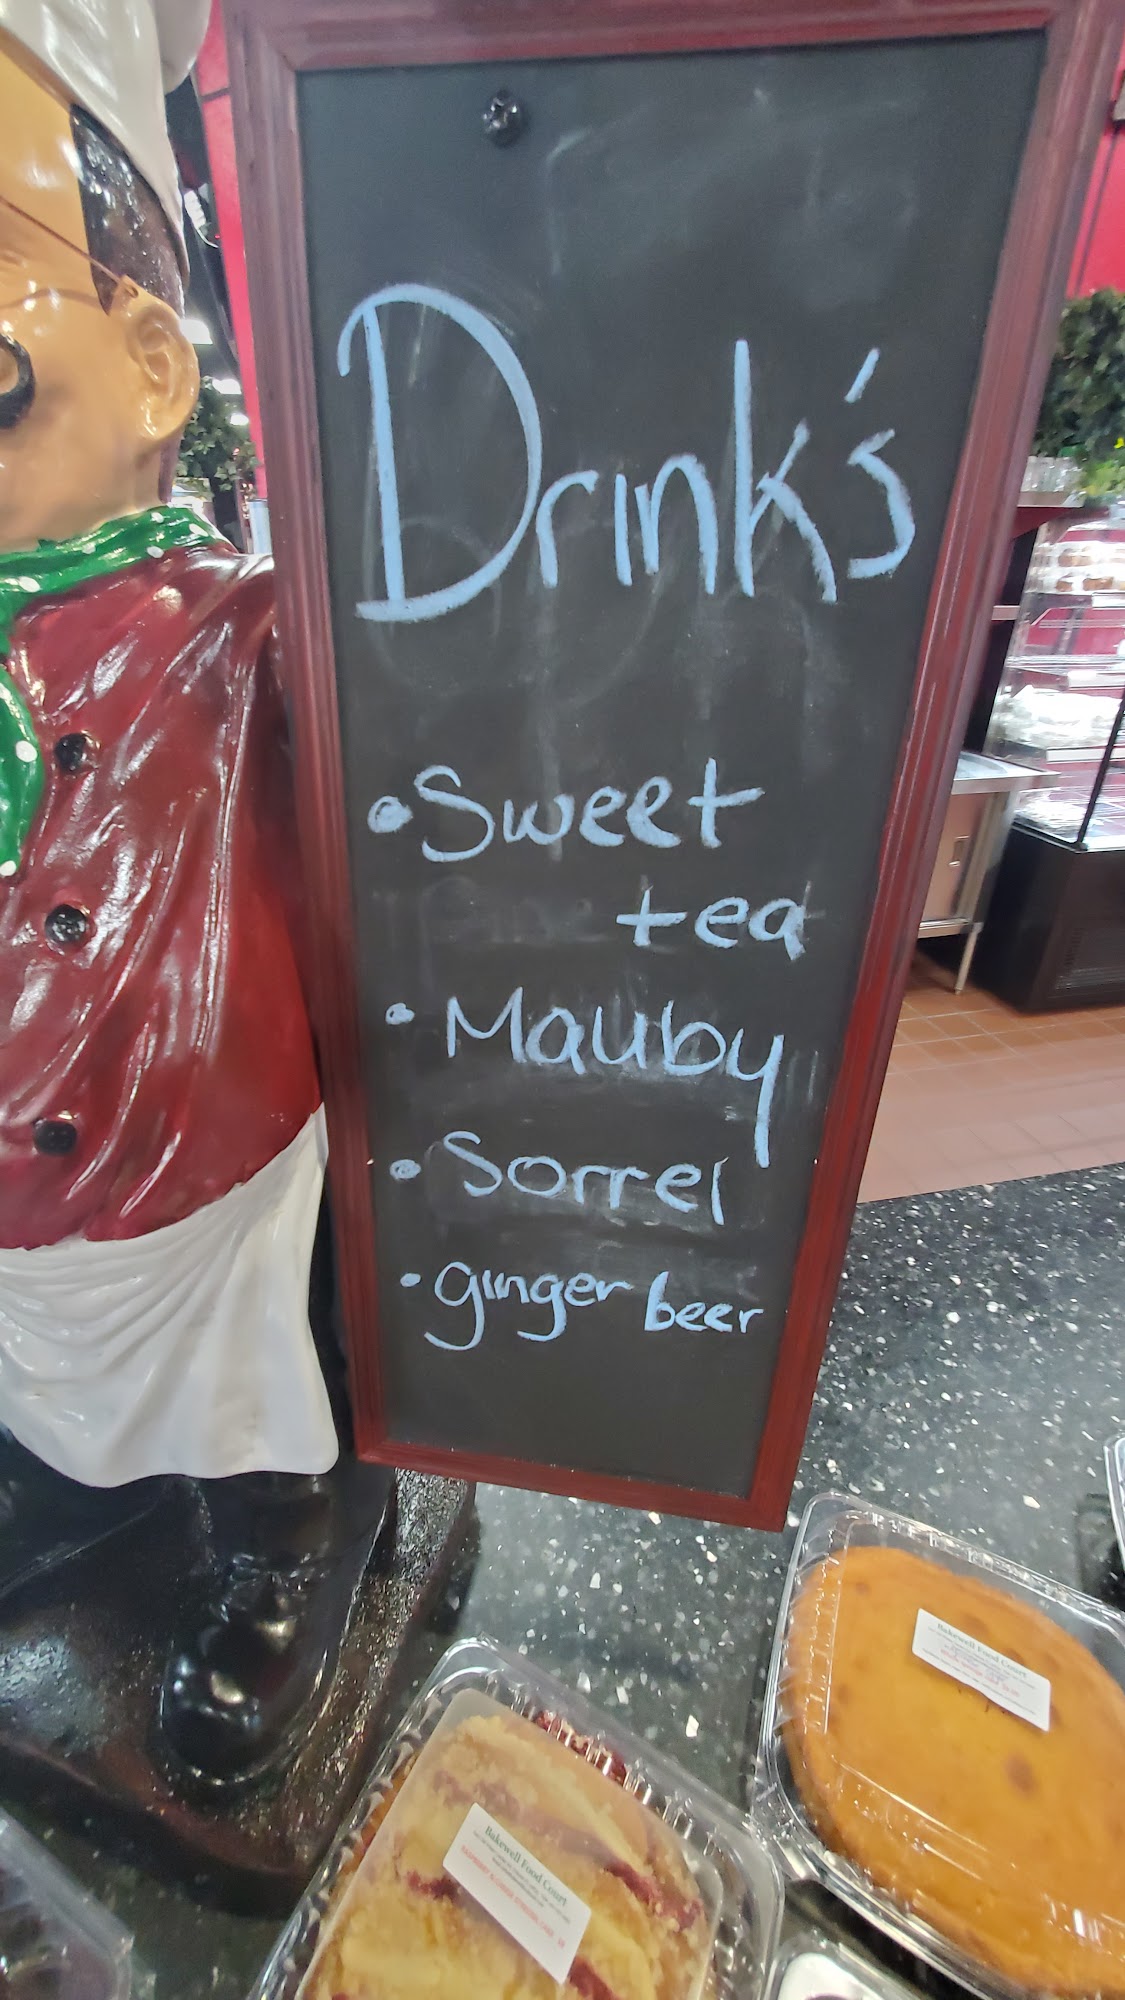 Drink's
• Sweet
tea
• Mauby
• Sorrel
• ginger beer
Bakewell Food Court
Bakewell Food Court